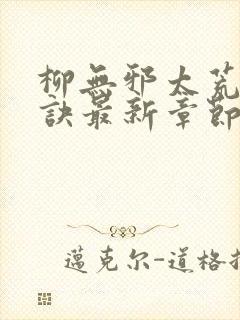 柳無邪太荒
訣最新章節
邁克尔-道格拉